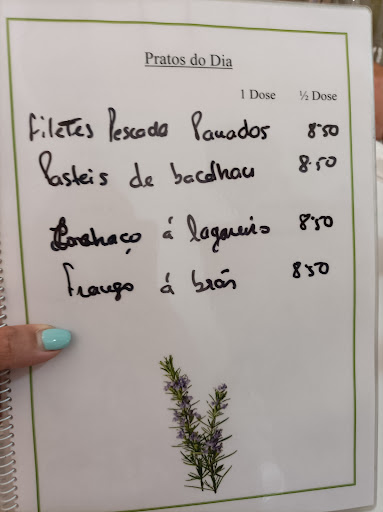 Pratos do Dia
1 Dose ½ Dose
Filetes Pescada Panados 8.50
Pasteis de bacalhau 8.50
á lagareiro 8.50
Frango á brás 850